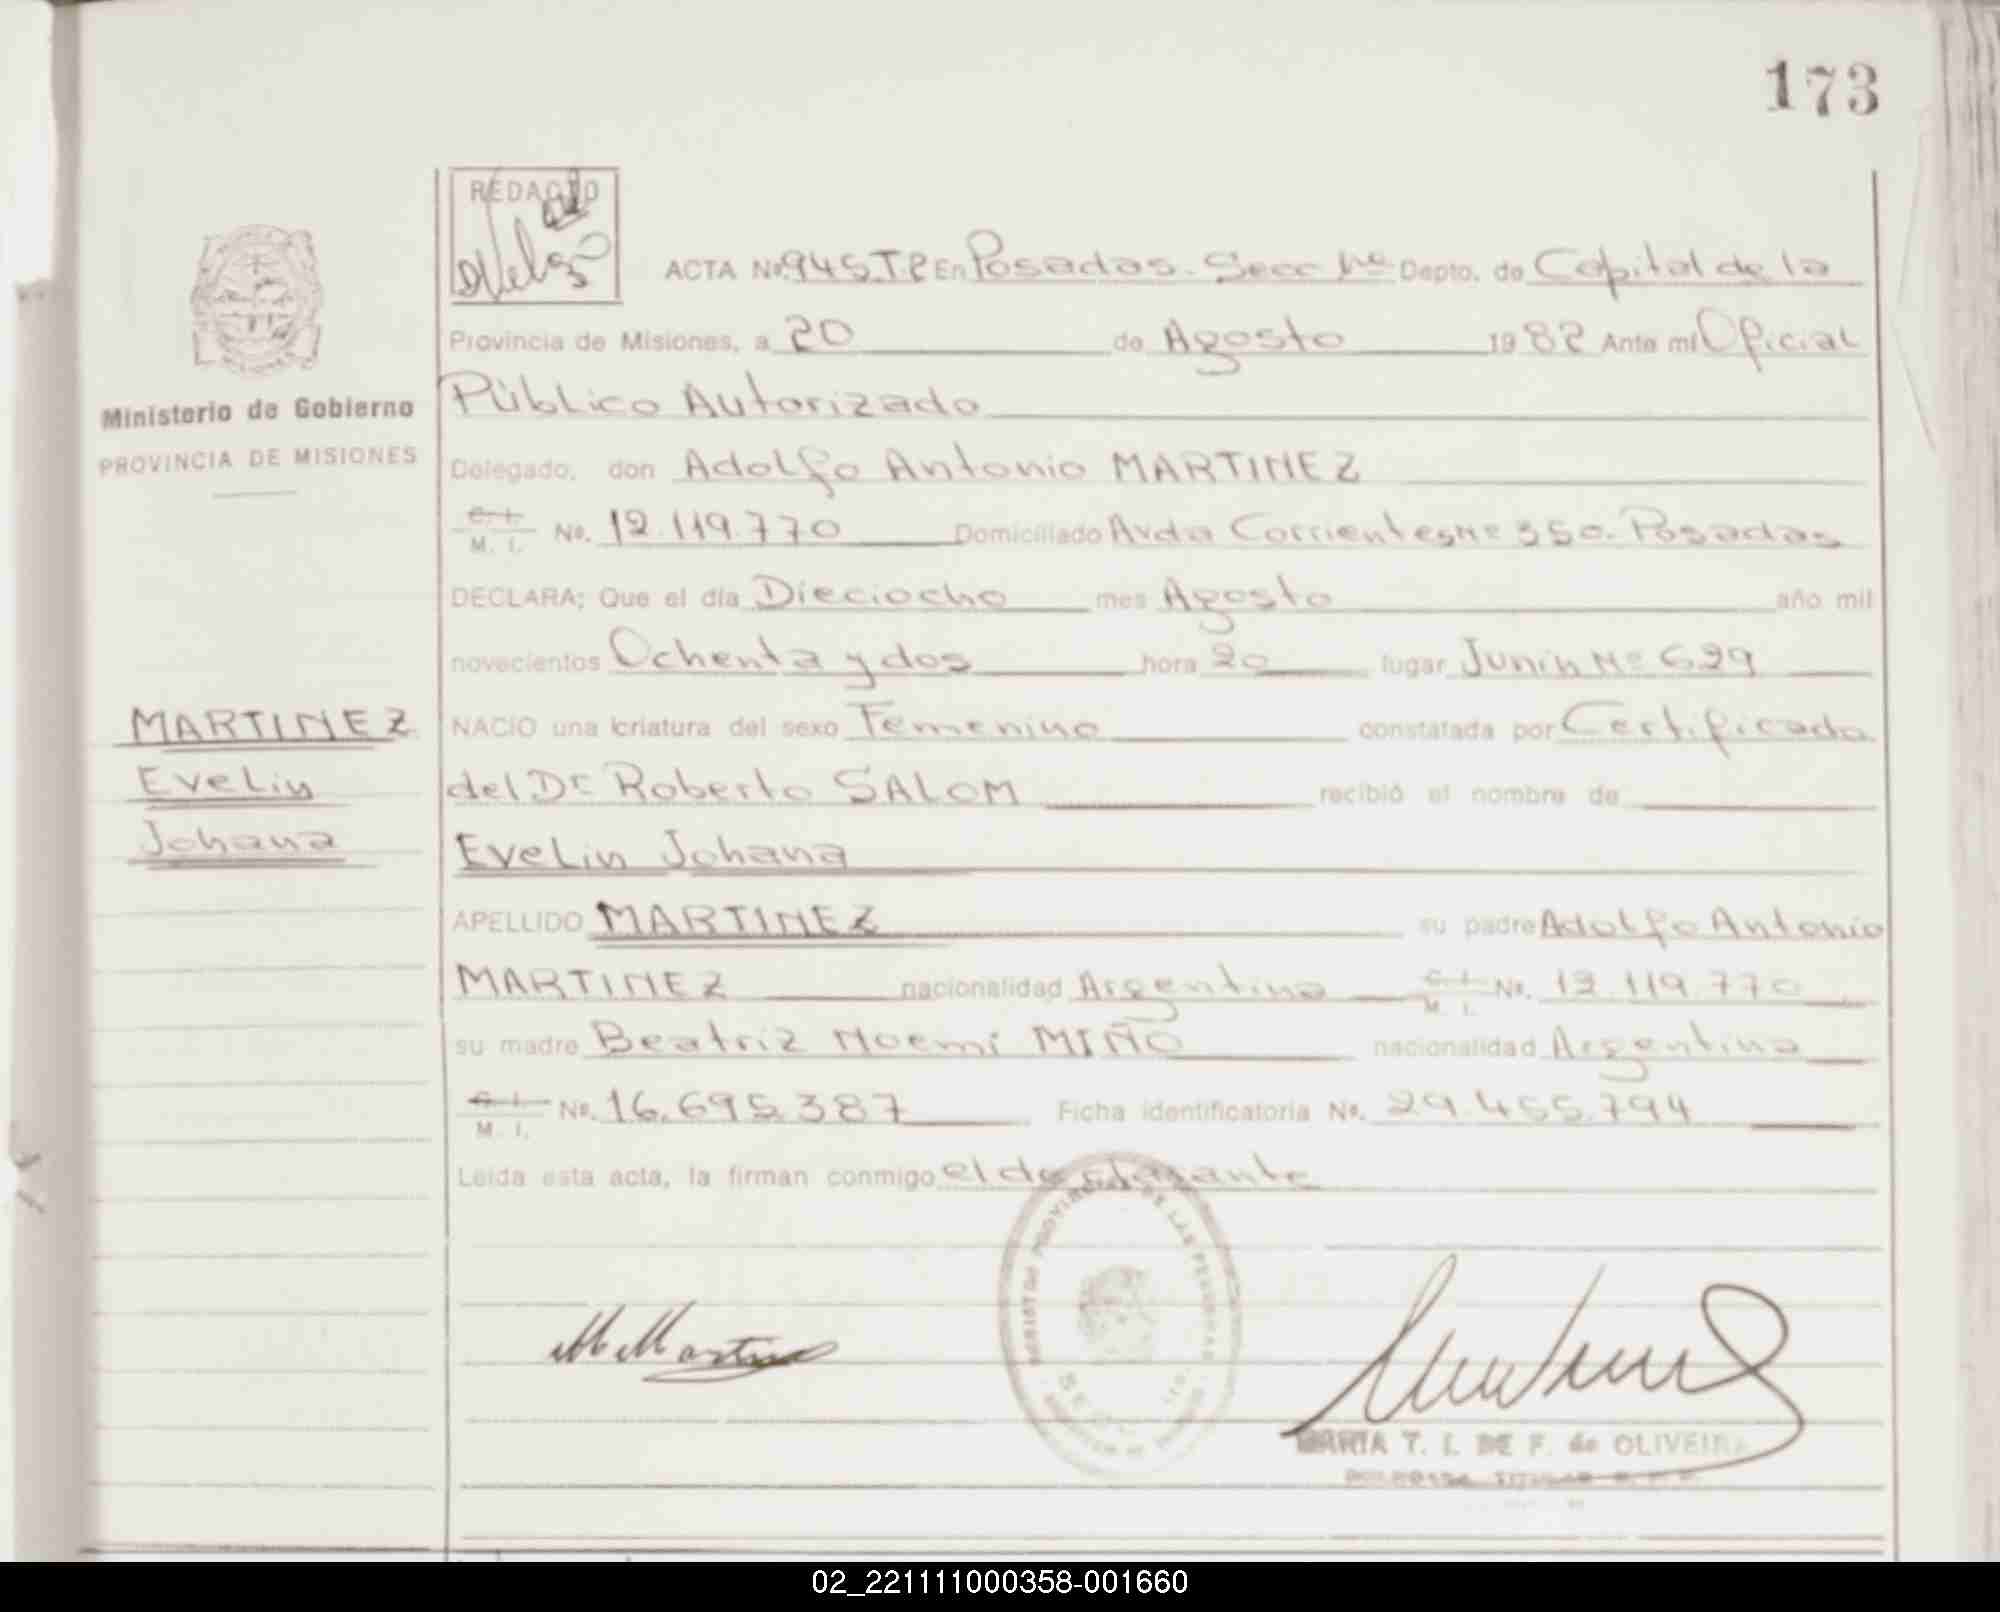 173
REDACTO
ACTA Nº 945.T.P En Posadas. Secc 1ra Depto. de Capital de la
Provincia de Misiones, a 20 de Agosto 1982 Ante mi Oficial
Público Autorizado
Ministerio de Gobierno
PROVINCIA DE MISIONES
Delegado, don Adolfo Antonio MARTINEZ
C. I. M. I. No. 12.119.770 Domiciliado Avda Corrientes Nº 350. Posadas
DECLARA; Que el día Dieciocho mes Agosto año mil
novecientos Ochenta y dos hora 20 lugar Junín Nº 629
MARTINEZ
Evelin
Johana
NACIO una criatura del sexo Femenino constatada por Certificado
del Dr Roberto SALOM recibió el nombre de
Evelin Johana
APELLIDO MARTINEZ su padre Adolfo Antonio
MARTINEZ nacionalidad Argentina C. I. M. I. No. 12.119.770
su madre Beatriz Noemí MIÑO nacionalidad Argentina
C. I. M. I. No. 16.695.387 Ficha identificatoria No. 29.455.794
Leida esta acta, la firman conmigo el declarante
MARTA T. I. DE F. de OLIVEIRA
02_221111000358-001660